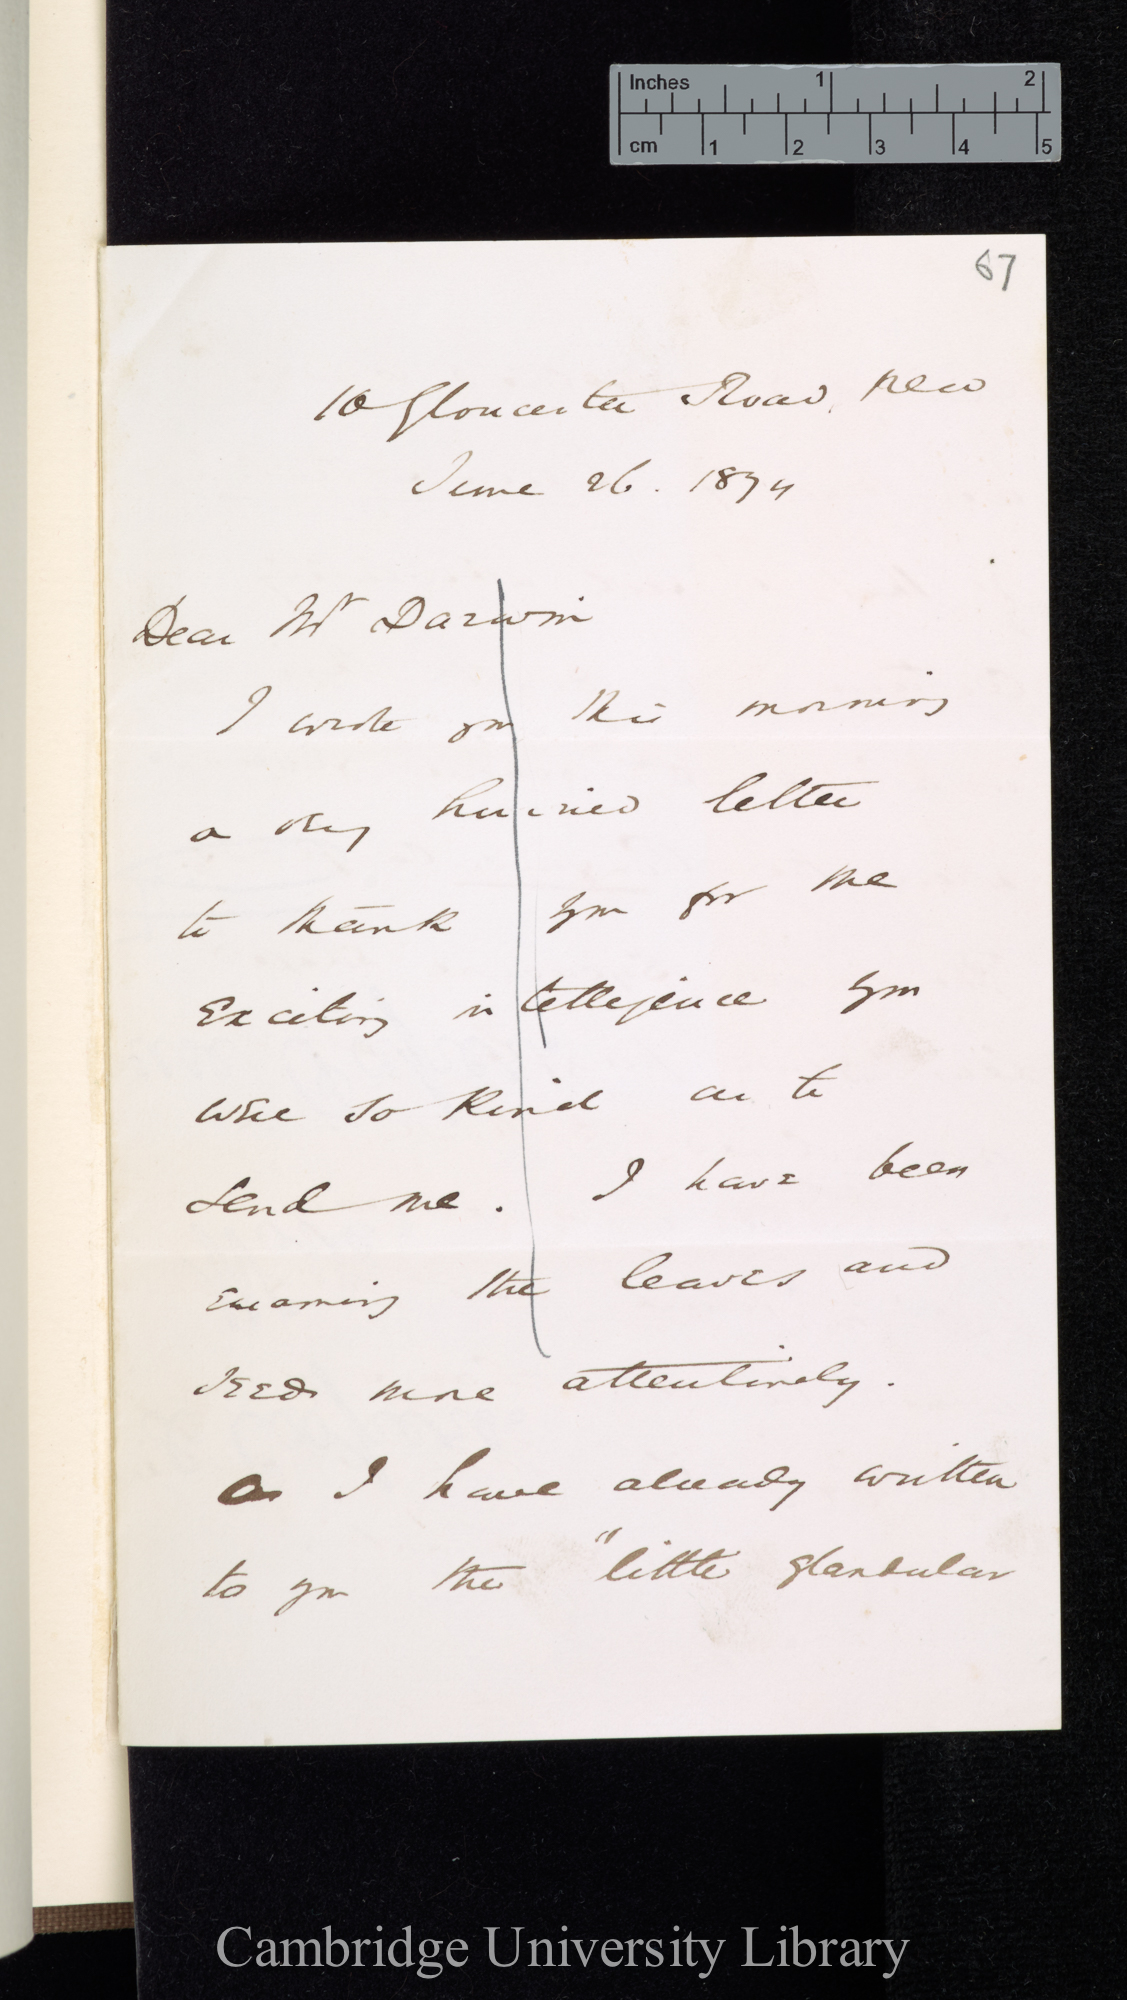 Inches 1 2
cm 1 2 3 4 5
67
10 Gloucester Road, Kew
June 26. 1874
Dear Mr Darwin
I wrote you this morning
a very hurried letter
to thank you for the
exciting intellegence you
were so kind as to
send me. I have been
examing the leaves and
seeds more attentively.
As I have already written
to you the "little glandular
Cambridge University Library